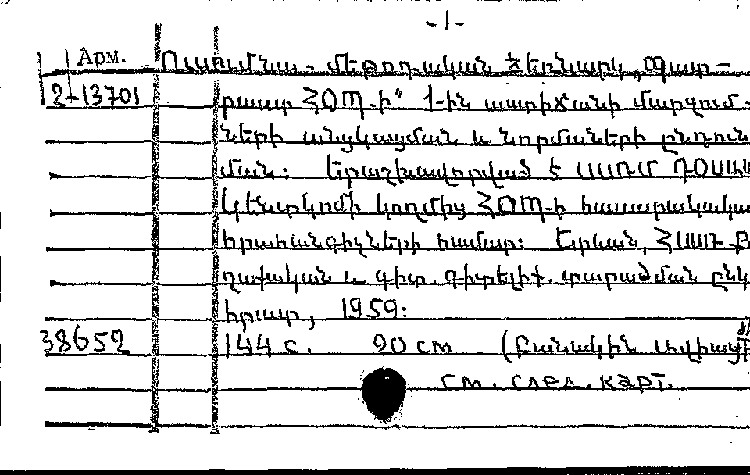 -1-
Арм. Ուսումնա-մեթոդական ձեռնարկ „Պատ-
2-13701 րաստ ՀՕՊ-ի“ 1-ին աստիճանի մարզում-
ների անցկացման և նորմաների ընդուն
ման: Երաշխավորված է ՍՍՌՄ ԴՕՍԱԱ
կենտկոմի կողմից ՀՕՊ-ի հասարակակա
հրահանգիչների համար: Երևան, ՀՍՍՌ
ղաքական և գիտ. գիտելիք. տարածման ընկ
հրատ, 1959:
38652 144 с. 20 см (Բանակին
см. след. карт.